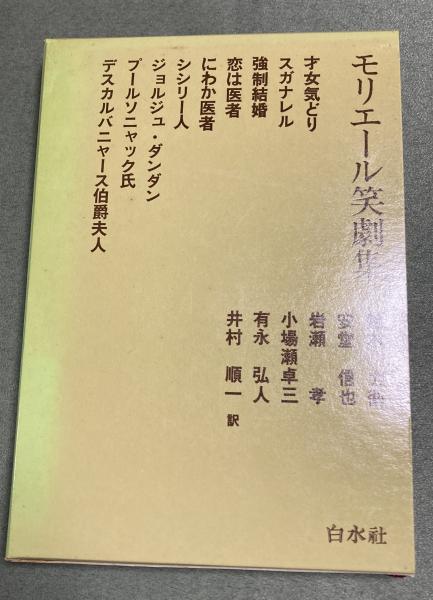 モリエール笑劇集
才女気どり
スガナレル
強制結婚
恋は医者
にわか医者
シシリー人
ジョルジュ・ダンダン
プールソニャック氏
デスカルバニャース伯爵夫人
安堂 信也
岩瀬 孝
小場瀬卓三
有永 弘人
井村 順一 訳
白水社